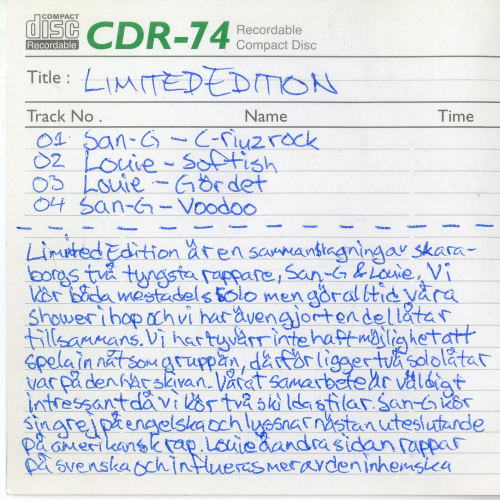 COMPACT
disc
Recordable
CDR-74
Recordable
Compact Disc
Title : LIMITED EDITION
Track No . Name Time
01 San-G – C-riuzrock
02 Louie – Softish
03 Louie – Gördet
04 San-G – Voodoo
Limited Edition är en sammanslagning av skara-
borgs två tyngsta rappare, San-G & Louie. Vi
kör båda mestadels solo men gör alltid våra
shower ihop och vi har även gjort en del låtar
tillsammans. Vi har tyvärr inte haft möjlighet att
spela in nåt som gruppän, därför ligger två sololåtar
var på den här skivan. Vårat samarbete är väldigt
intressant då vi kör två skilda stilar. San-G kör
sin grej på engelska och lyssnar nästan uteslutande
på amerikansk rap. Louie å andra sidan rappar
på svenska och influeras mer av den inhemska